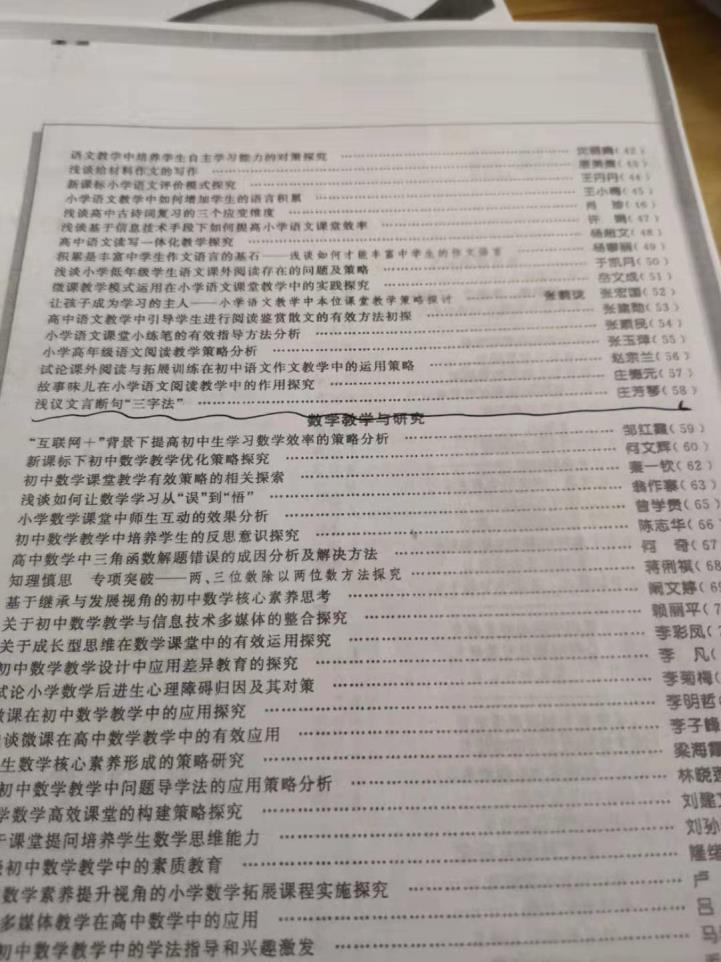 语文教学中培养学生自主学习能力的对策探究 (42)
浅谈给材料作文的写作 (43)
新课标小学语文评价模式探究 王丹丹(44)
小学语文教学中如何增加学生的语言积累 王小梅(45)
浅谈高中古诗词复习的三个应变维度 肖 (46)
浅谈基于信息技术手段下如何提高小学语文课堂效率 许 (47)
高中语文读写一体化教学探究 杨 文(48)
积累是丰富中学生作文语言的基石——浅谈如何才能丰富中学生的作文语言 杨 丽(49)
浅谈小学低年级学生语文课外阅读存在的问题及策略 于凯月(50)
微课教学模式运用在小学语文课堂教学中的实践探究 岳文成(51)
让孩子成为学习的主人——小学语文教学中本位课堂教学策略探讨 张 张宏国(52)
高中语文教学中引导学生进行阅读鉴赏散文的有效方法初探 张建勋(53)
小学语文课堂小练笔的有效指导方法分析 张 民(54)
小学高年级语文阅读教学策略分析 张玉萍(55)
试论课外阅读与拓展训练在初中语文作文教学中的运用策略 赵宗兰(56)
故事味儿在小学语文阅读教学中的作用探究 庄德元(57)
浅议文言断句“三字法” 庄芳琴(58)
数学教学与研究
“互联网+”背景下提高初中生学习数学效率的策略分析 邹红霞(59)
新课标下初中数学教学优化策略探究 何文辉(60)
初中数学课堂教学有效策略的相关探索 一钦(62)
浅谈如何让数学学习从“误”到“悟” 翁作 (63)
小学数学课堂中师生互动的效果分析 曾学贵(65)
初中数学教学中培养学生的反思意识探究 陈志华(66
高中数学中三角函数解题错误的成因分析及解决方法 何 奇(67
知理慎思 专项突破——两、三位数除以两位数方法探究 蒋 祺(68
基于继承与发展视角的初中数学核心素养思考 阚文婷(69
关于初中数学教学与信息技术多媒体的整合探究 赖丽平(7
关于成长型思维在数学课堂中的有效运用探究 李彩凤(
初中数学教学设计中应用差异教育的探究 李 凡(
试论小学数学后进生心理障碍归因及其对策 李菊梅(
微课在初中数学教学中的应用探究 李明哲(
谈微课在高中数学教学中的有效应用 李子峰
生数学核心素养形成的策略研究 梁海霞
初中数学教学中问题导学法的应用策略分析 林晓
学数学高效课堂的构建策略探究 刘建
课堂提问培养学生数学思维能力 刘孙
初中数学教学中的素质教育 隆
数学素养提升视角的小学数学拓展课程实施探究 卢
多媒体教学在高中数学中的应用 吕
初中数学教学中的学法指导和兴趣激发 马